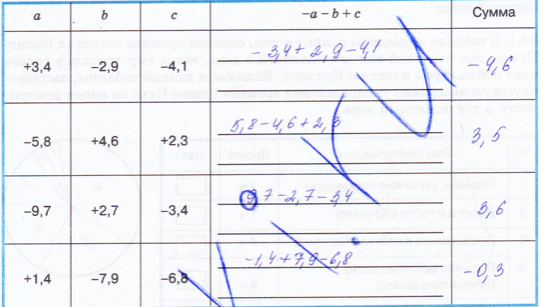 a b c −a − b + c Сумма
+3,4 −2,9 −4,1 −3,4+2,9−4,1 −4,6
−5,8 +4,6 +2,3 5,8−4,6+2,3 3,5
−9,7 +2,7 −3,4 9,7−2,7−3,4 3,6
+1,4 −7,9 −6,8 −1,4+7,9−6,8 −0,3